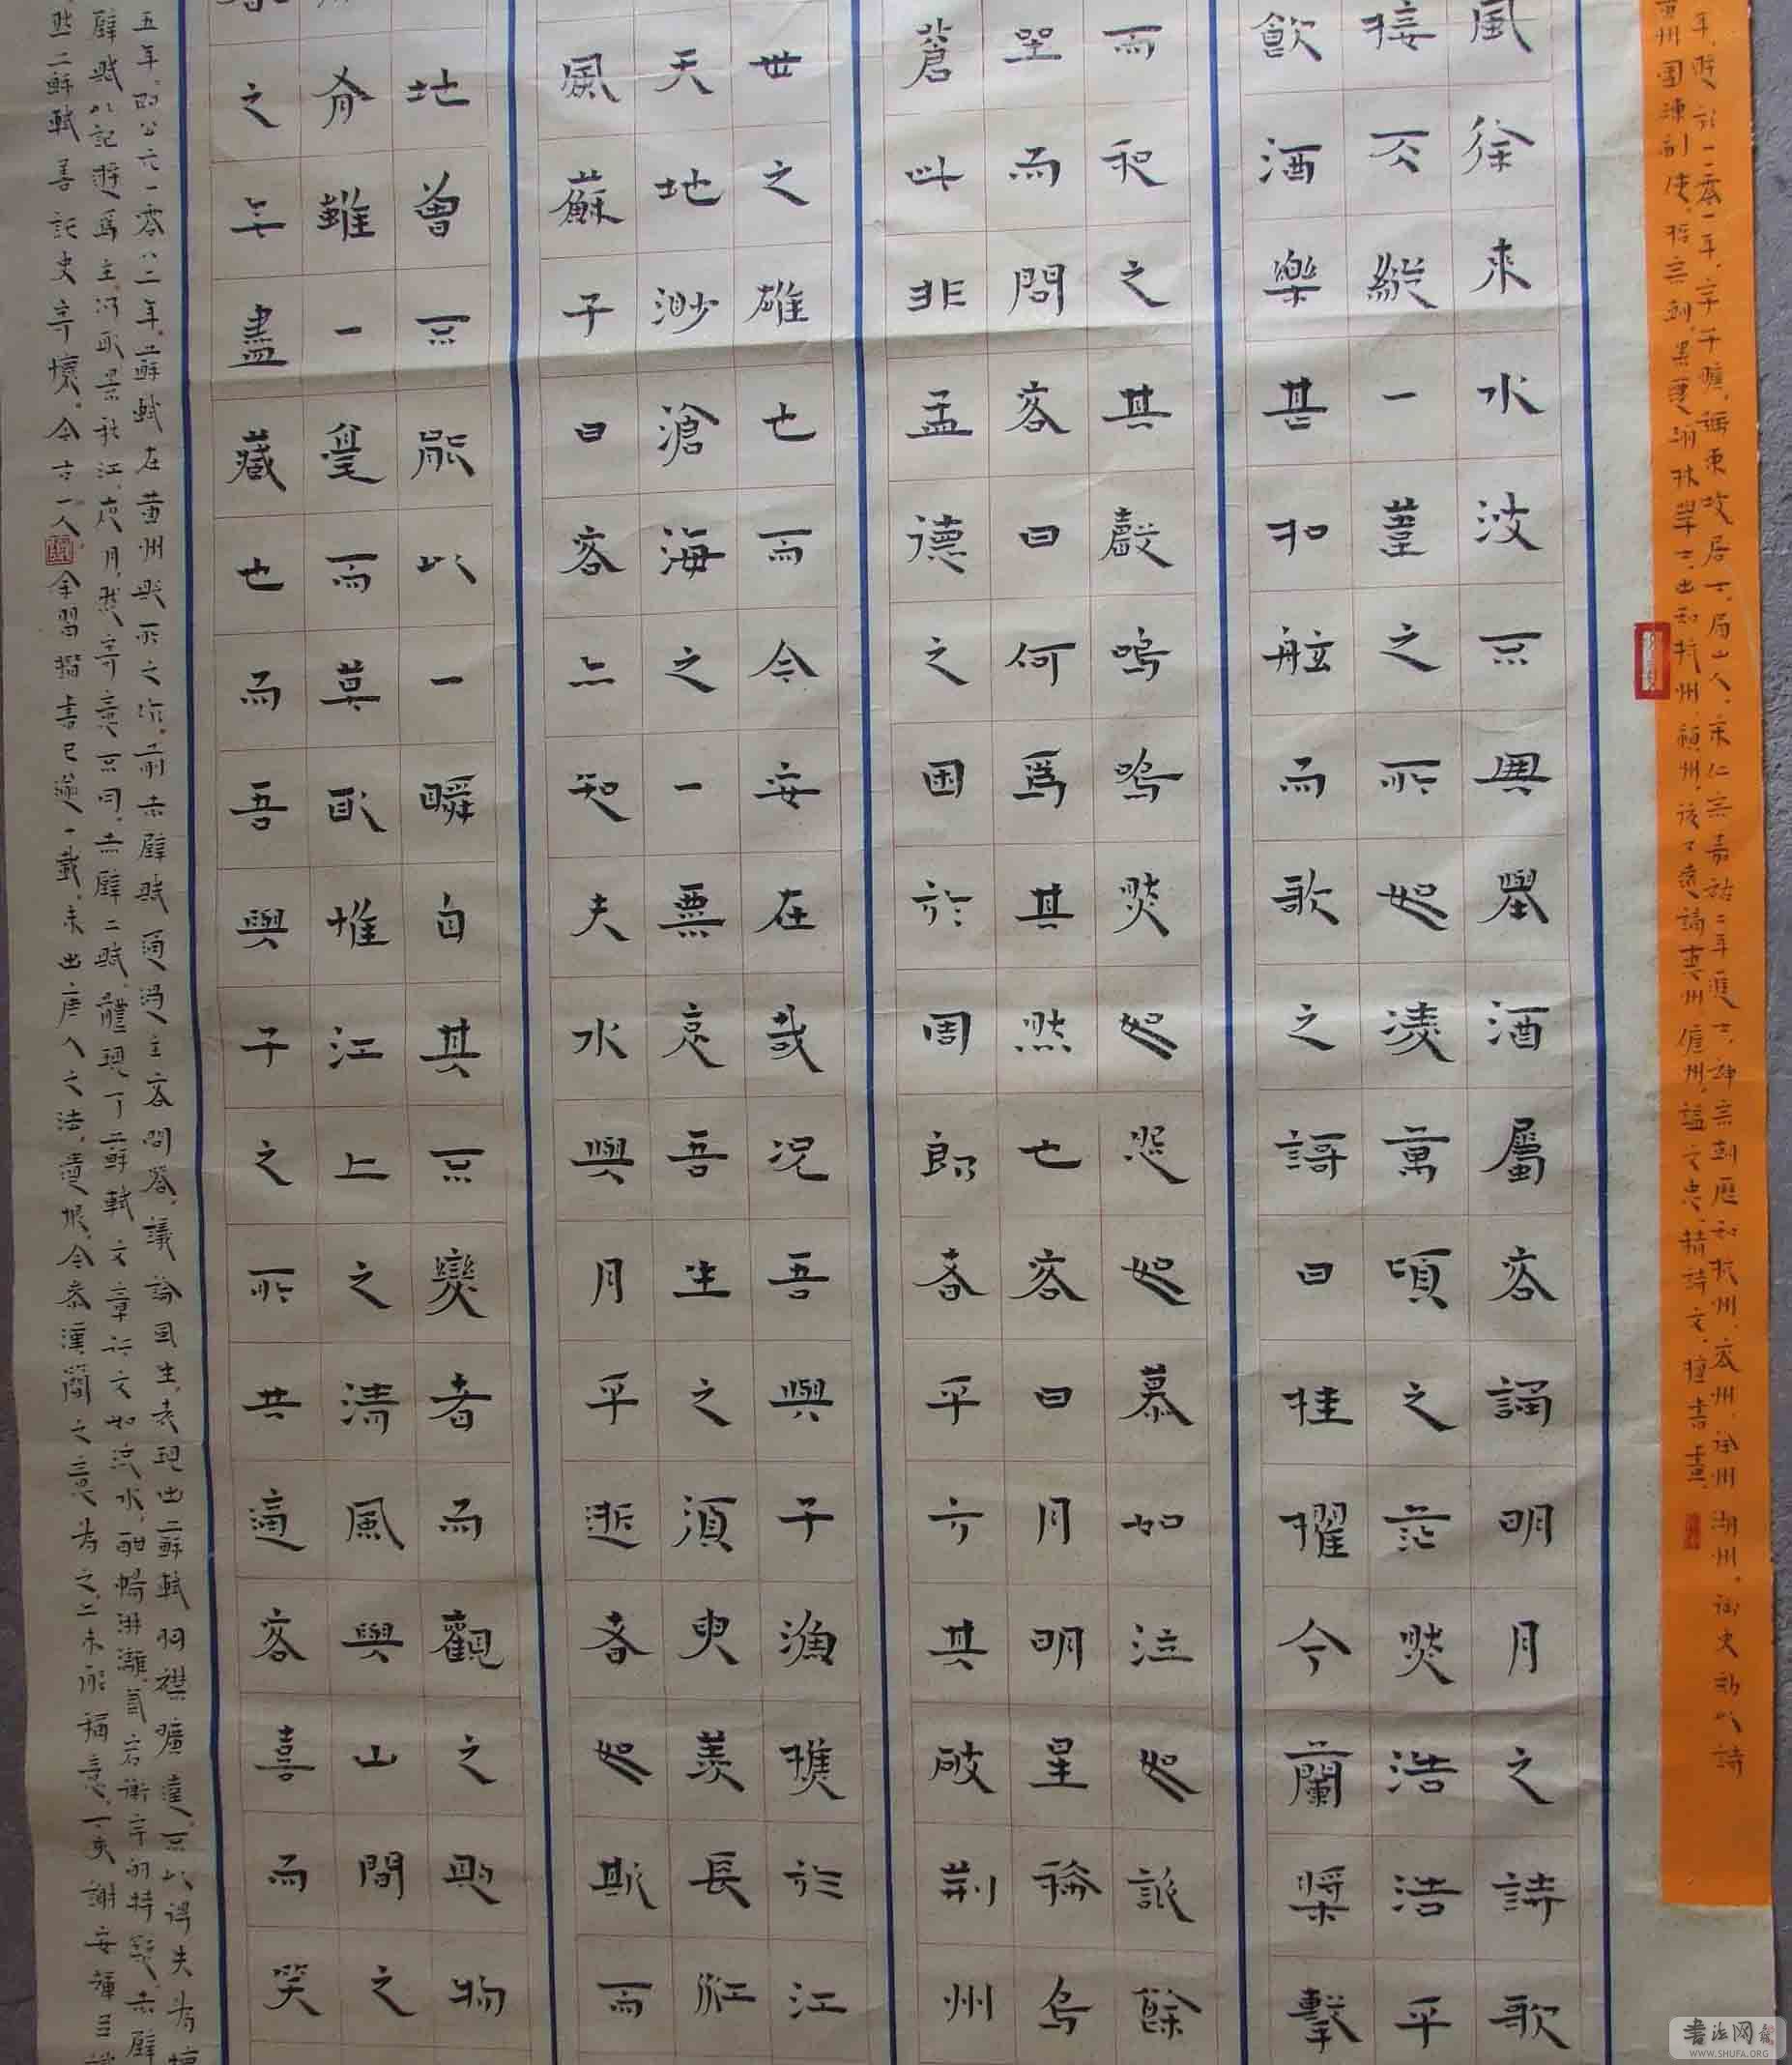 年,殁於一一零一年,字子瞻,號東坡居士,眉山人,宋仁宗嘉祐二年進士,神宗朝歷知杭州、密州、徐州、湖州。御史劾以詩
黄州團練副使。哲宗朝,累更翰林學士,出知杭州、潁州,後又遠謫惠州、儋州。謚文忠。精詩文,擅書畫
風徐來水波不興舉酒屬客誦明月之詩歌
接天縱一葦之所如凌萬頃之茫然浩浩乎
飲酒樂甚扣舷而歌之謌曰桂擢兮蘭槳擊
而和之其聲嗚嗚然如怨如慕如泣如訴餘
坐而問客曰何爲其然也客曰月明星稀烏
蒼此非孟德之困於周郎者乎方其破荊州
世之雄也而今安在哉况吾與子漁樵於江
天地渺滄海之一粟哀吾生之須臾羨長江
風蘇子曰客亦知夫水與月乎逝者如斯而
地曾不能以一瞬自其不變者而觀之則物
有雖一毫而莫取惟江上之清風與山間之
之無盡藏也而吾與子之所共適客喜而笑
五年,即公元一零八二年,蘇軾在黄州之作,前赤壁賦通過主客問答,議論風生,表現出蘇軾胸襟曠達,不以得失为懷
壁賦以記遊爲主,取景秋江、夜月,然寄意不同,赤壁二賦,體現了蘇軾文章行文如流水,酣暢淋漓,赤壁
蘇軾善託史寄懷。今古一人。余習楷書已逾一載,未出唐人之法,遺恨,今参漢簡之意为之,亦未能稱意,一笑謝安輝
書法网
WWW.SHUFA.ORG